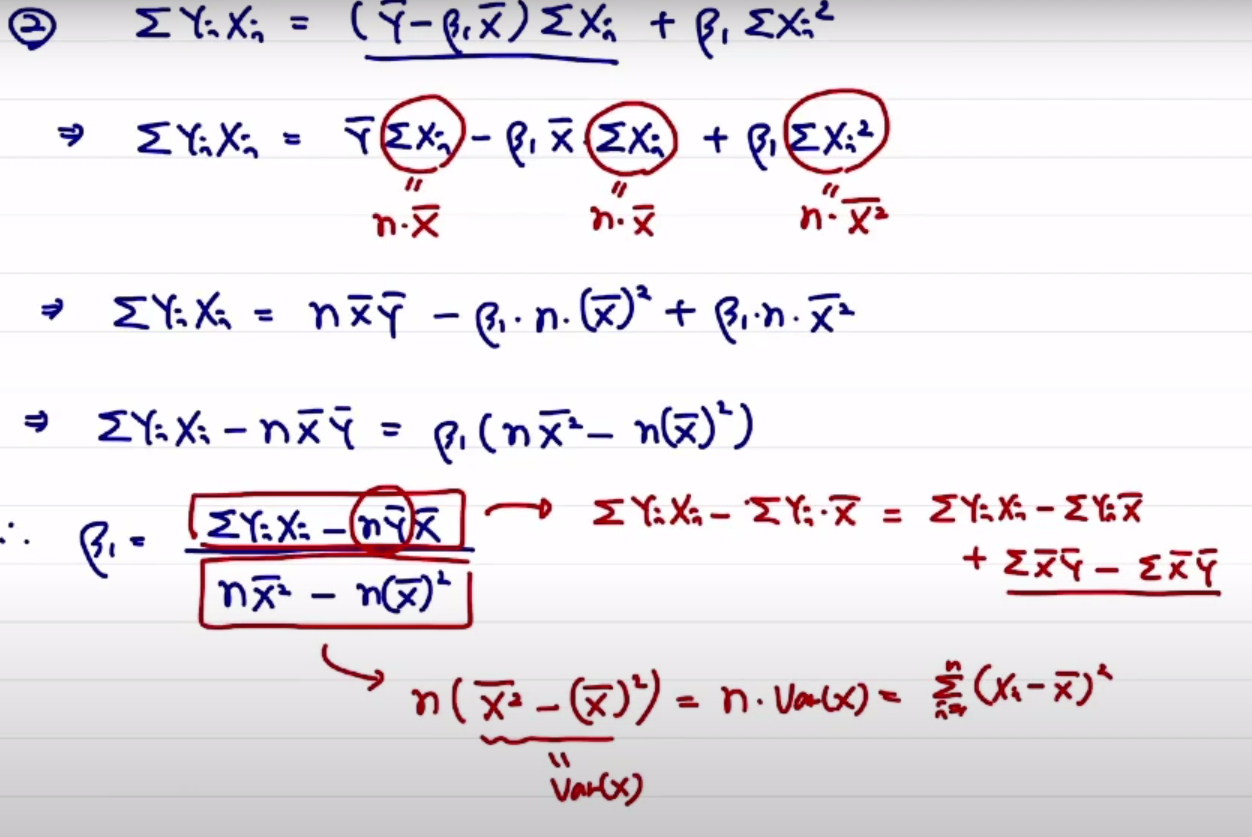 ② ΣYᵢXᵢ = (Ȳ-β₁X̄)ΣXᵢ + β₁ΣXᵢ²
⇒ ΣYᵢXᵢ = ȲΣXᵢ - β₁X̄ΣXᵢ + β₁ΣXᵢ²
" " "
n·X̄ n·X̄ n·X̅²̅
⇒ ΣYᵢXᵢ = nX̄Ȳ - β₁·n·(X̄)² + β₁·n·X̅²̅
⇒ ΣYᵢXᵢ - nX̄Ȳ = β₁(nX̅²̅ - n(X̄)²)
∴ β₁ = (ΣYᵢXᵢ - nȲX̄) / (nX̅²̅ - n(X̄)²) → ΣYᵢXᵢ - ΣYᵢ·X̄ = ΣYᵢXᵢ - ΣYᵢX̄
+ ΣX̄Ȳ - ΣX̄Ȳ
→ n(X̅²̅ - (X̄)²) = n·Var(X) = Σⁿᵢ₌₁(Xᵢ-X̄)²
"
Var(X)